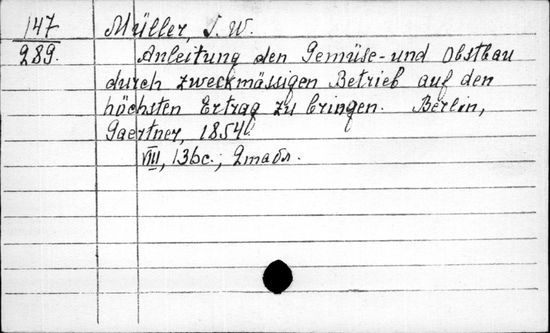 147 Müller, J. W.
289. Anleitung den Gemüse- und Obstbau
durch zweckmässigen Betrieb auf den
höchsten Ertrag zu bringen. Berlin,
Gaertner, 1854.
VIII, 136с.; 2табл.